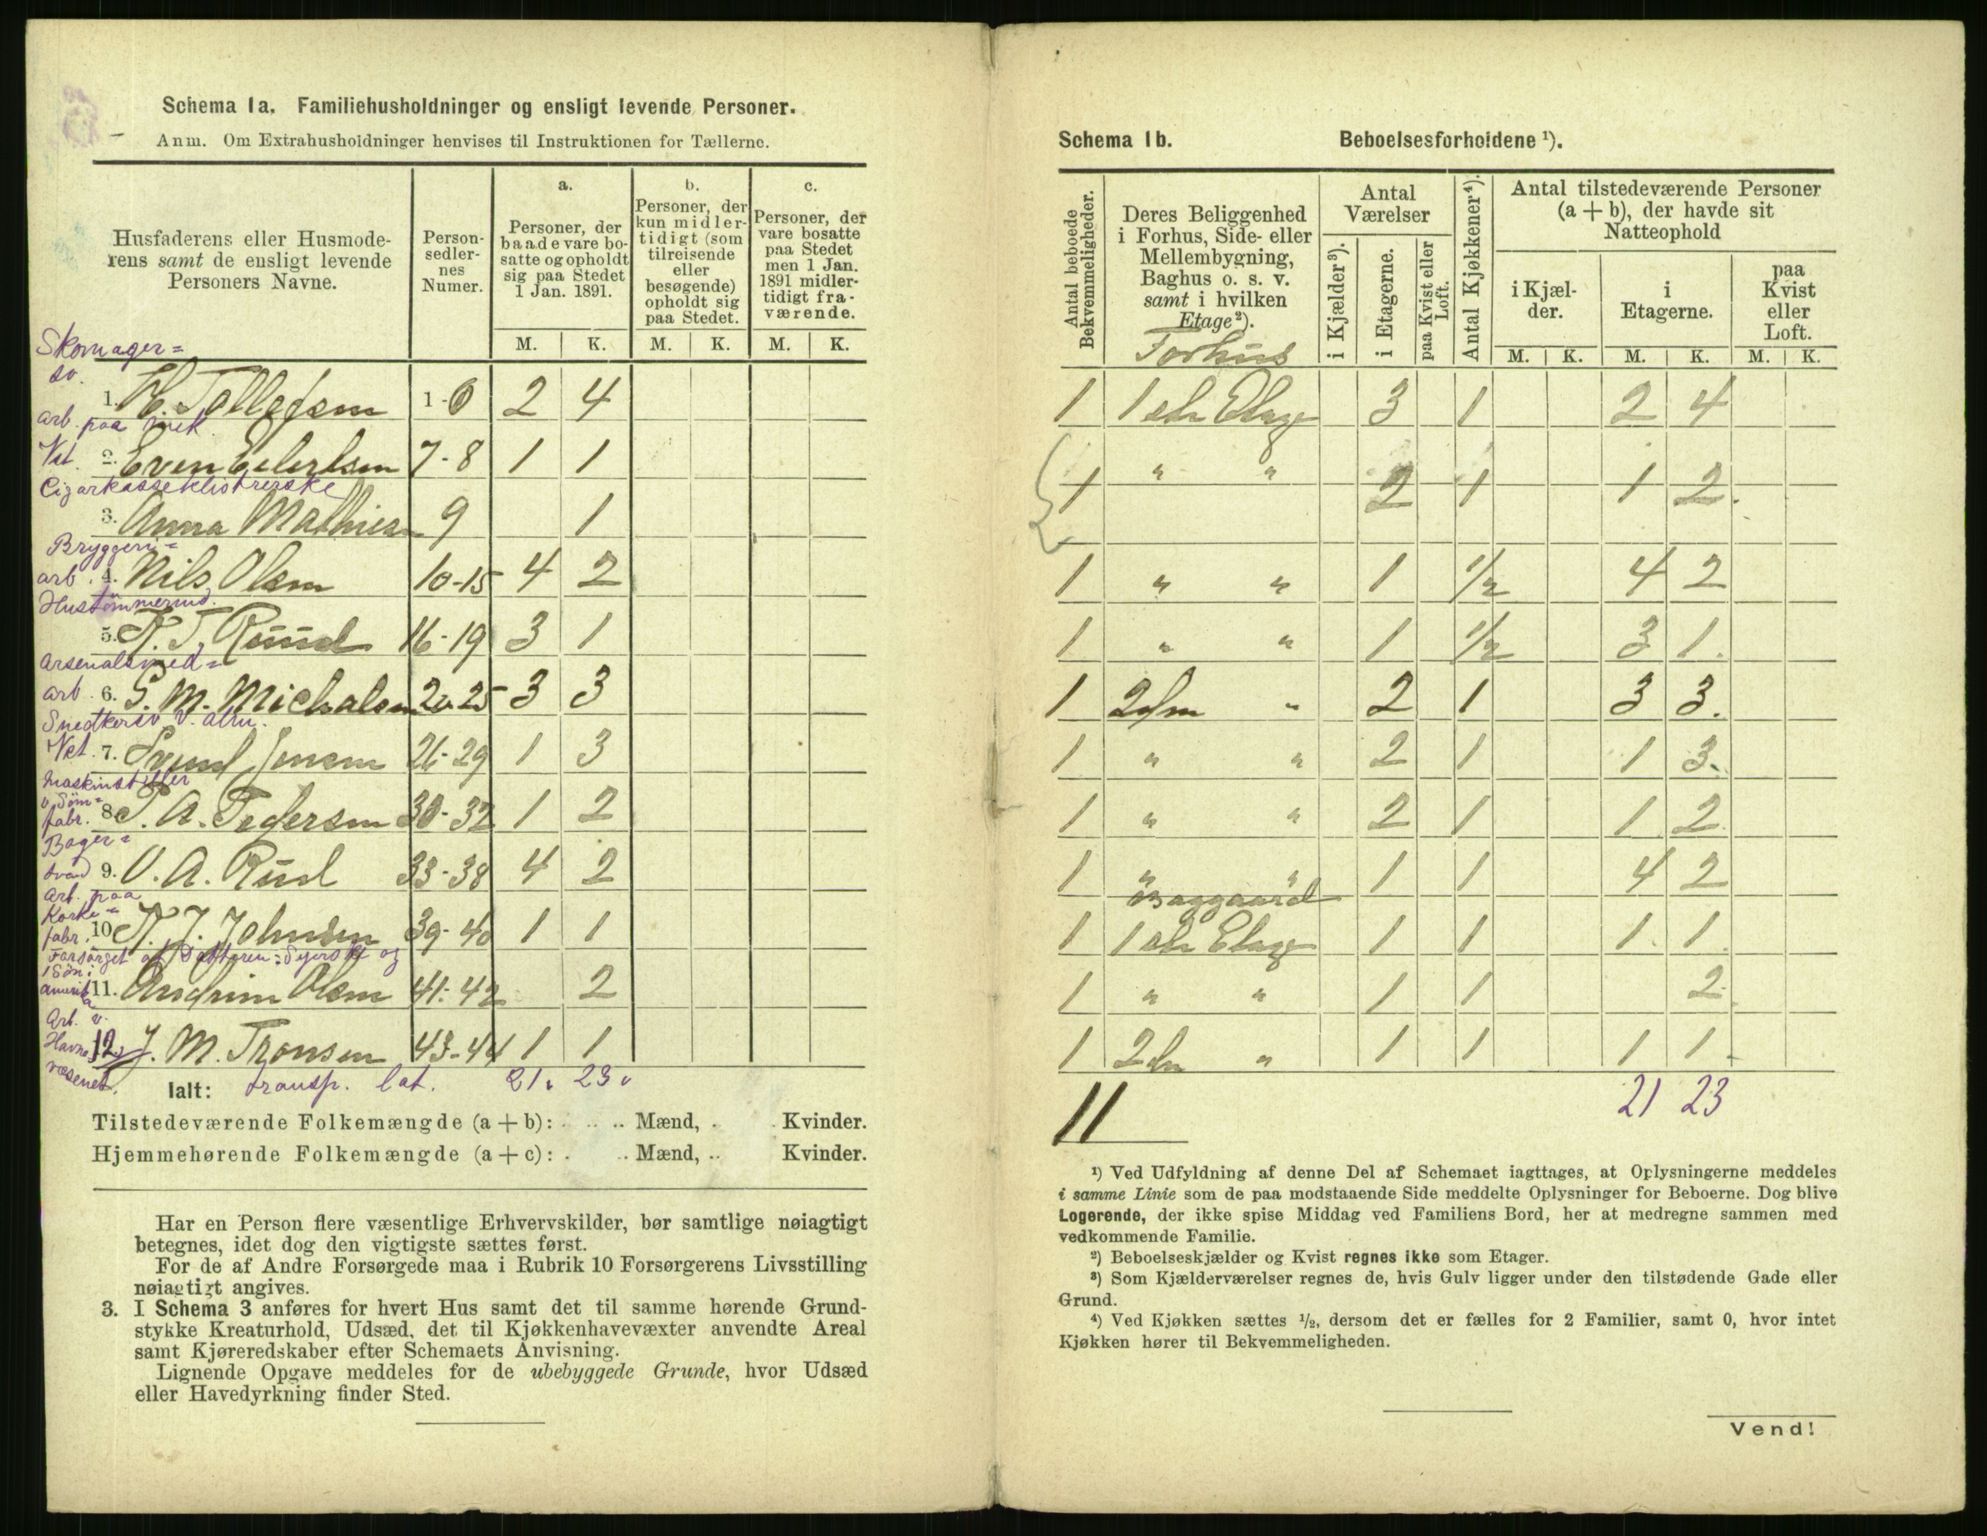 Schema 1a. Familiehusholdninger og ensligt levende Personer.
Anm. Om Extrahusholdninger henvises til Instruktionen for Tællerne.
Husfaderens eller Husmoderens samt de ensligt levende Personers Navne.
Personsedlernes Numer.
a.
Personer, der baade vare bosatte og opholdt sig paa Stedet 1 Jan. 1891.
b.
Personer, der kun midlertidigt (som tilreisende eller besøgende) opholdt sig paa Stedet.
c.
Personer, der vare bosatte paa Stedet men 1 Jan. 1891 midlertidigt fraværende.
M. K. M. K. M. K.
Skomager=
sv.
1. H. Tollefsen 1-6 2 4
arb. paa mek.
Vst. 2. Even Eilertsen 7-8 1 1
Cigarkasseklistrerske
3. Anna Mathiesen 9 1
Bryggeri=
arb. 4. Nils Olsen 10-15 4 2
Hustømmermd.
5. K. T. Ruud 16-19 3 1
Arsenalsmed=
arb. 6. S. M. Michalsen 20-25 3 3
Snedkersv v. alm.
Vst. 7. Svend Jensen 26-29 1 3
Maskinstiller
v Søm=
fabr. 8. P. A. Pedersen 30-32 1 2
Bager=
svend 9. O. A. Rud 33-38 4 2
Arb. paa
Korke=
fabr. 10. N. J. Johnsen 39-40 1 1
Forsørget af Datteren: Syerske og
1 Søn i
Amerika 11. Andrine Olsen 41-42 2
Arb. v.
Havne 12. J. M. Tronsen 43-44 1 1
væsenet.
Ialt: transp. lat. 21. 23.
Tilstedeværende Folkemængde (a + b): Mænd, Kvinder.
Hjemmehørende Folkemængde (a + c): Mænd, Kvinder.
Har en Person flere væsentlige Erhvervskilder, bør samtlige nøiagtigt
betegnes, idet dog den vigtigste sættes først.
For de af Andre Forsørgede maa i Rubrik 10 Forsørgerens Livsstilling
nøiagtigt angives.
3. I Schema 3 anføres for hvert Hus samt det til samme hørende Grund-
stykke Kreaturhold, Udsæd, det til Kjøkkenhavevæxter anvendte Areal
samt Kjøreredskaber efter Schemaets Anvisning.
Lignende Opgave meddeles for de ubebyggede Grunde, hvor Udsæd
eller Havedyrkning finder Sted.
Schema 1b. Beboelsesforholdene ¹).
Antal beboede Bekvemmeligheder.
Deres Beliggenhed i Forhus, Side- eller Mellembygning, Baghus o. s. v. samt i hvilken Etage²).
Antal Værelser
i Kjælder³).
i Etagerne.
paa Kvist eller Loft.
Antal Kjøkkener⁴).
Antal tilstedeværende Personer (a + b), der havde sit Natteophold
i Kjælder.
i Etagerne.
paa Kvist eller Loft.
M. K. M. K. M. K.
Forhus
1 1ste Etage 3 1 2 4
1 " " 2 1 1 2.
1 " " 1 1/2 4 2
1 " " 1 1/2 3 1.
1 2den " 2 1 3 3.
1 " " 2 1 1 3.
1 " " 2 1 1 2.
1 " " 1 1 4 2
Baggaard
1 1ste Etage 1 1 1 1.
1 " " 1 1 2.
1 2den " 1 1 1 1.
11 21 23
¹) Ved Udfyldning af denne Del af Schemaet iagttages, at Oplysningerne meddeles
i samme Linie som de paa modstaaende Side meddelte Oplysninger for Beboerne. Dog blive
Logerende, der ikke spise Middag ved Familiens Bord, her at medregne sammen med
vedkommende Familie.
²) Beboelseskjælder og Kvist regnes ikke som Etager.
³) Som Kjælderværelser regnes de, hvis Gulv ligger under den tilstødende Gade eller
Grund.
⁴) Ved Kjøkken sættes ½, dersom det er fælles for 2 Familier, samt 0, hvor intet
Kjøkken hører til Bekvemmeligheden.
Vend!